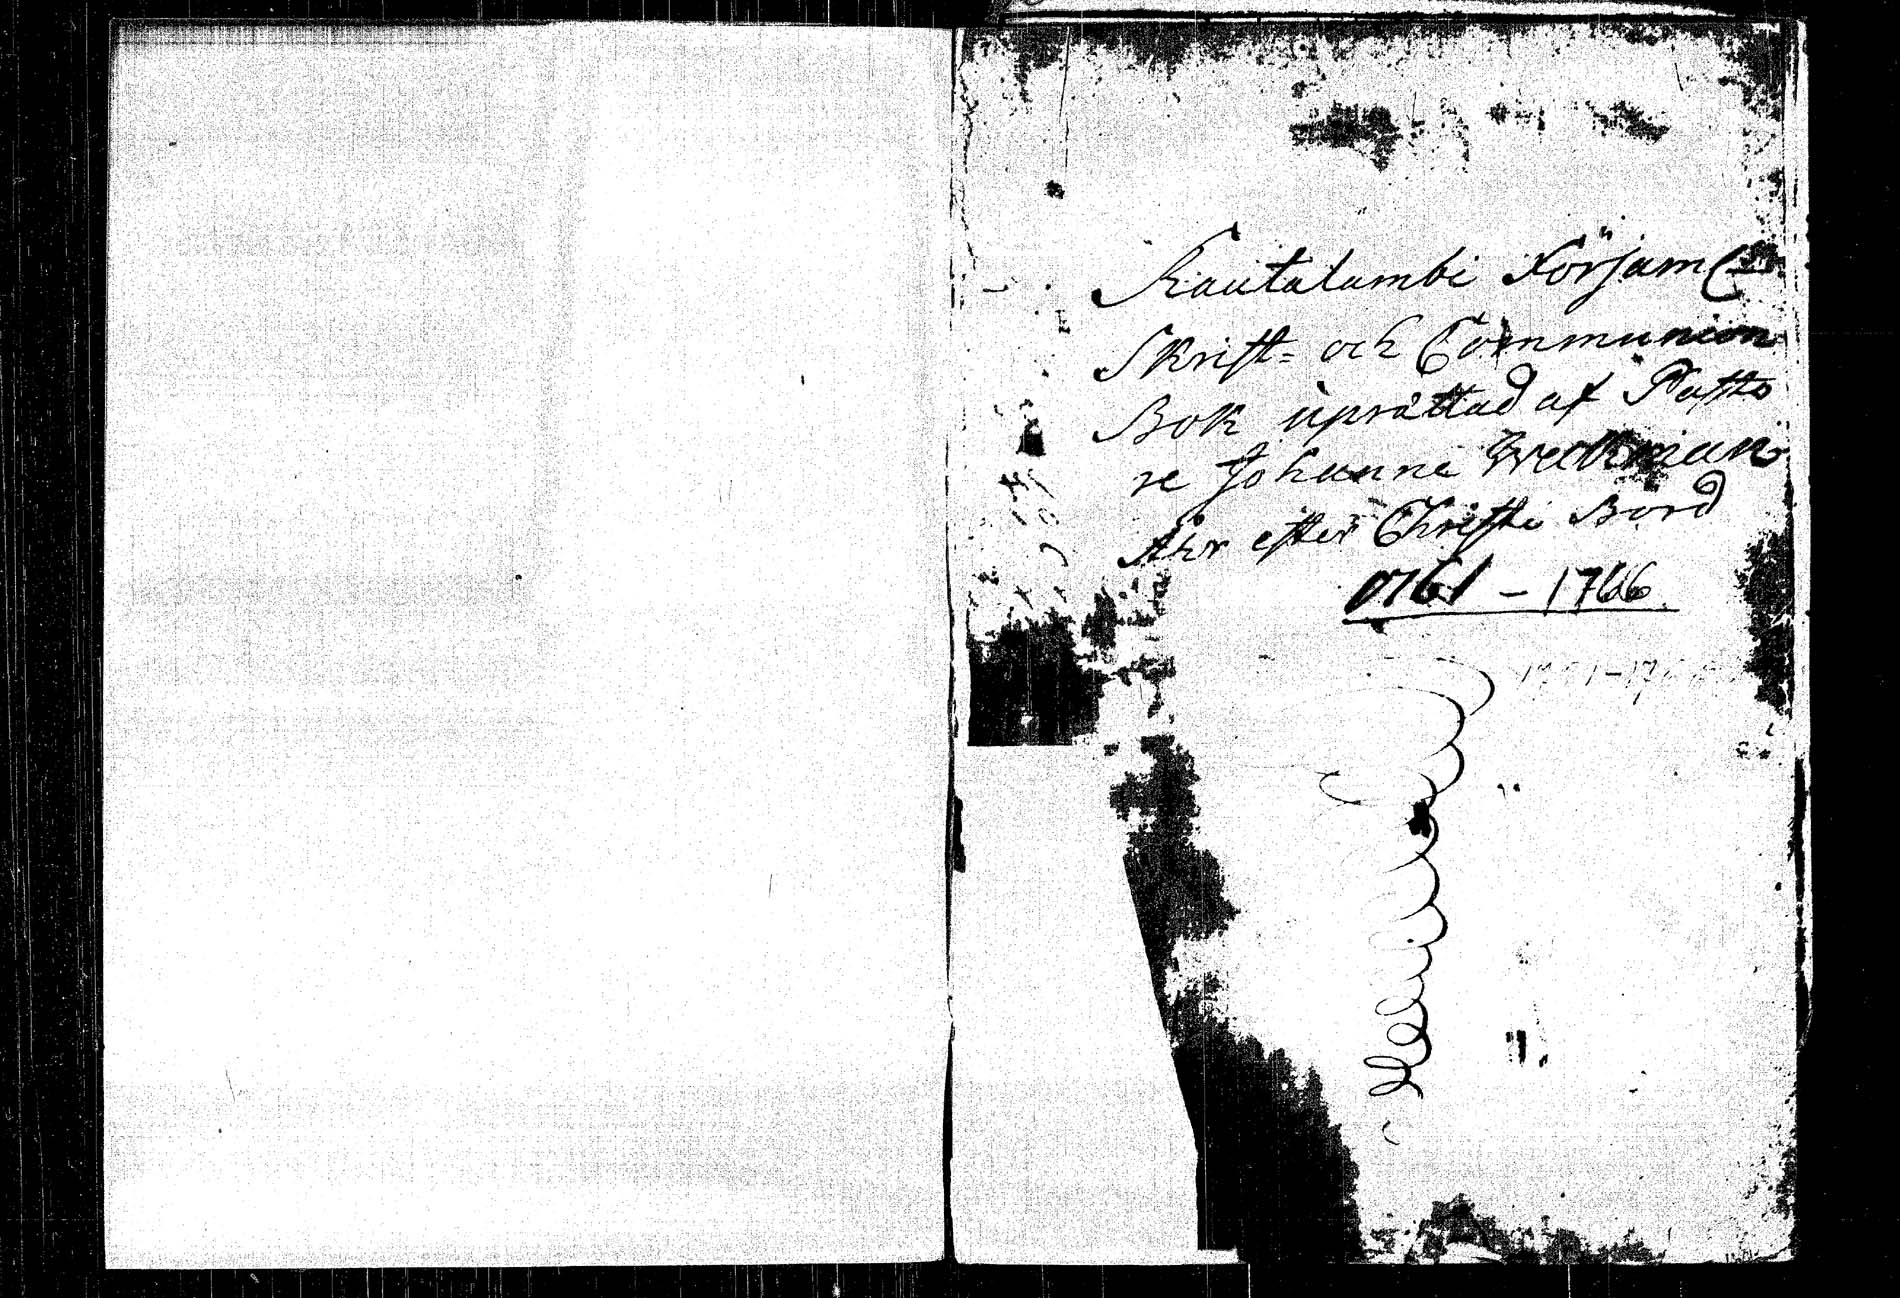 Rautalambi Församl
Skrift= och Communion
Bok uprättad af Pasto
re Johanne Weckman
Åhr efter Christi Bord
1761 - 1766
1761-17